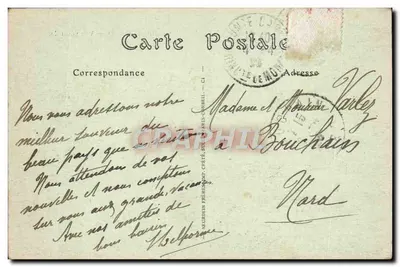 Carte Postale
Correspondance
Adresse
Nous vous adressons notre
meilleur souvenir du
beau pays que
Nous attendons de vos
nouvelles et nous comptons
sur vous aux grande vacances
Avec nos amitiés de
bons baisers
Madame et Monsieur Varlez
à Bouchain
Nord